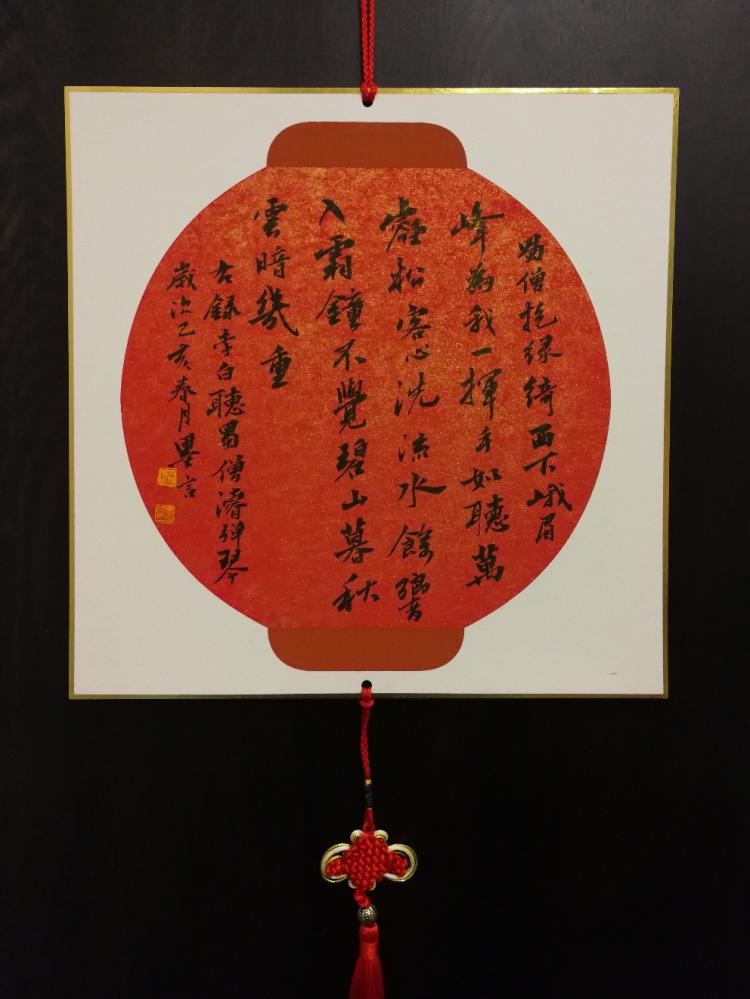 蜀僧抱綠綺西下峨眉
峰為我一揮手如聽萬
壑松客心洗流水餘響
入霜鐘不覺碧山暮秋
雲暗幾重
右錄李白聽蜀僧濬彈琴
歲次乙亥春月墨言